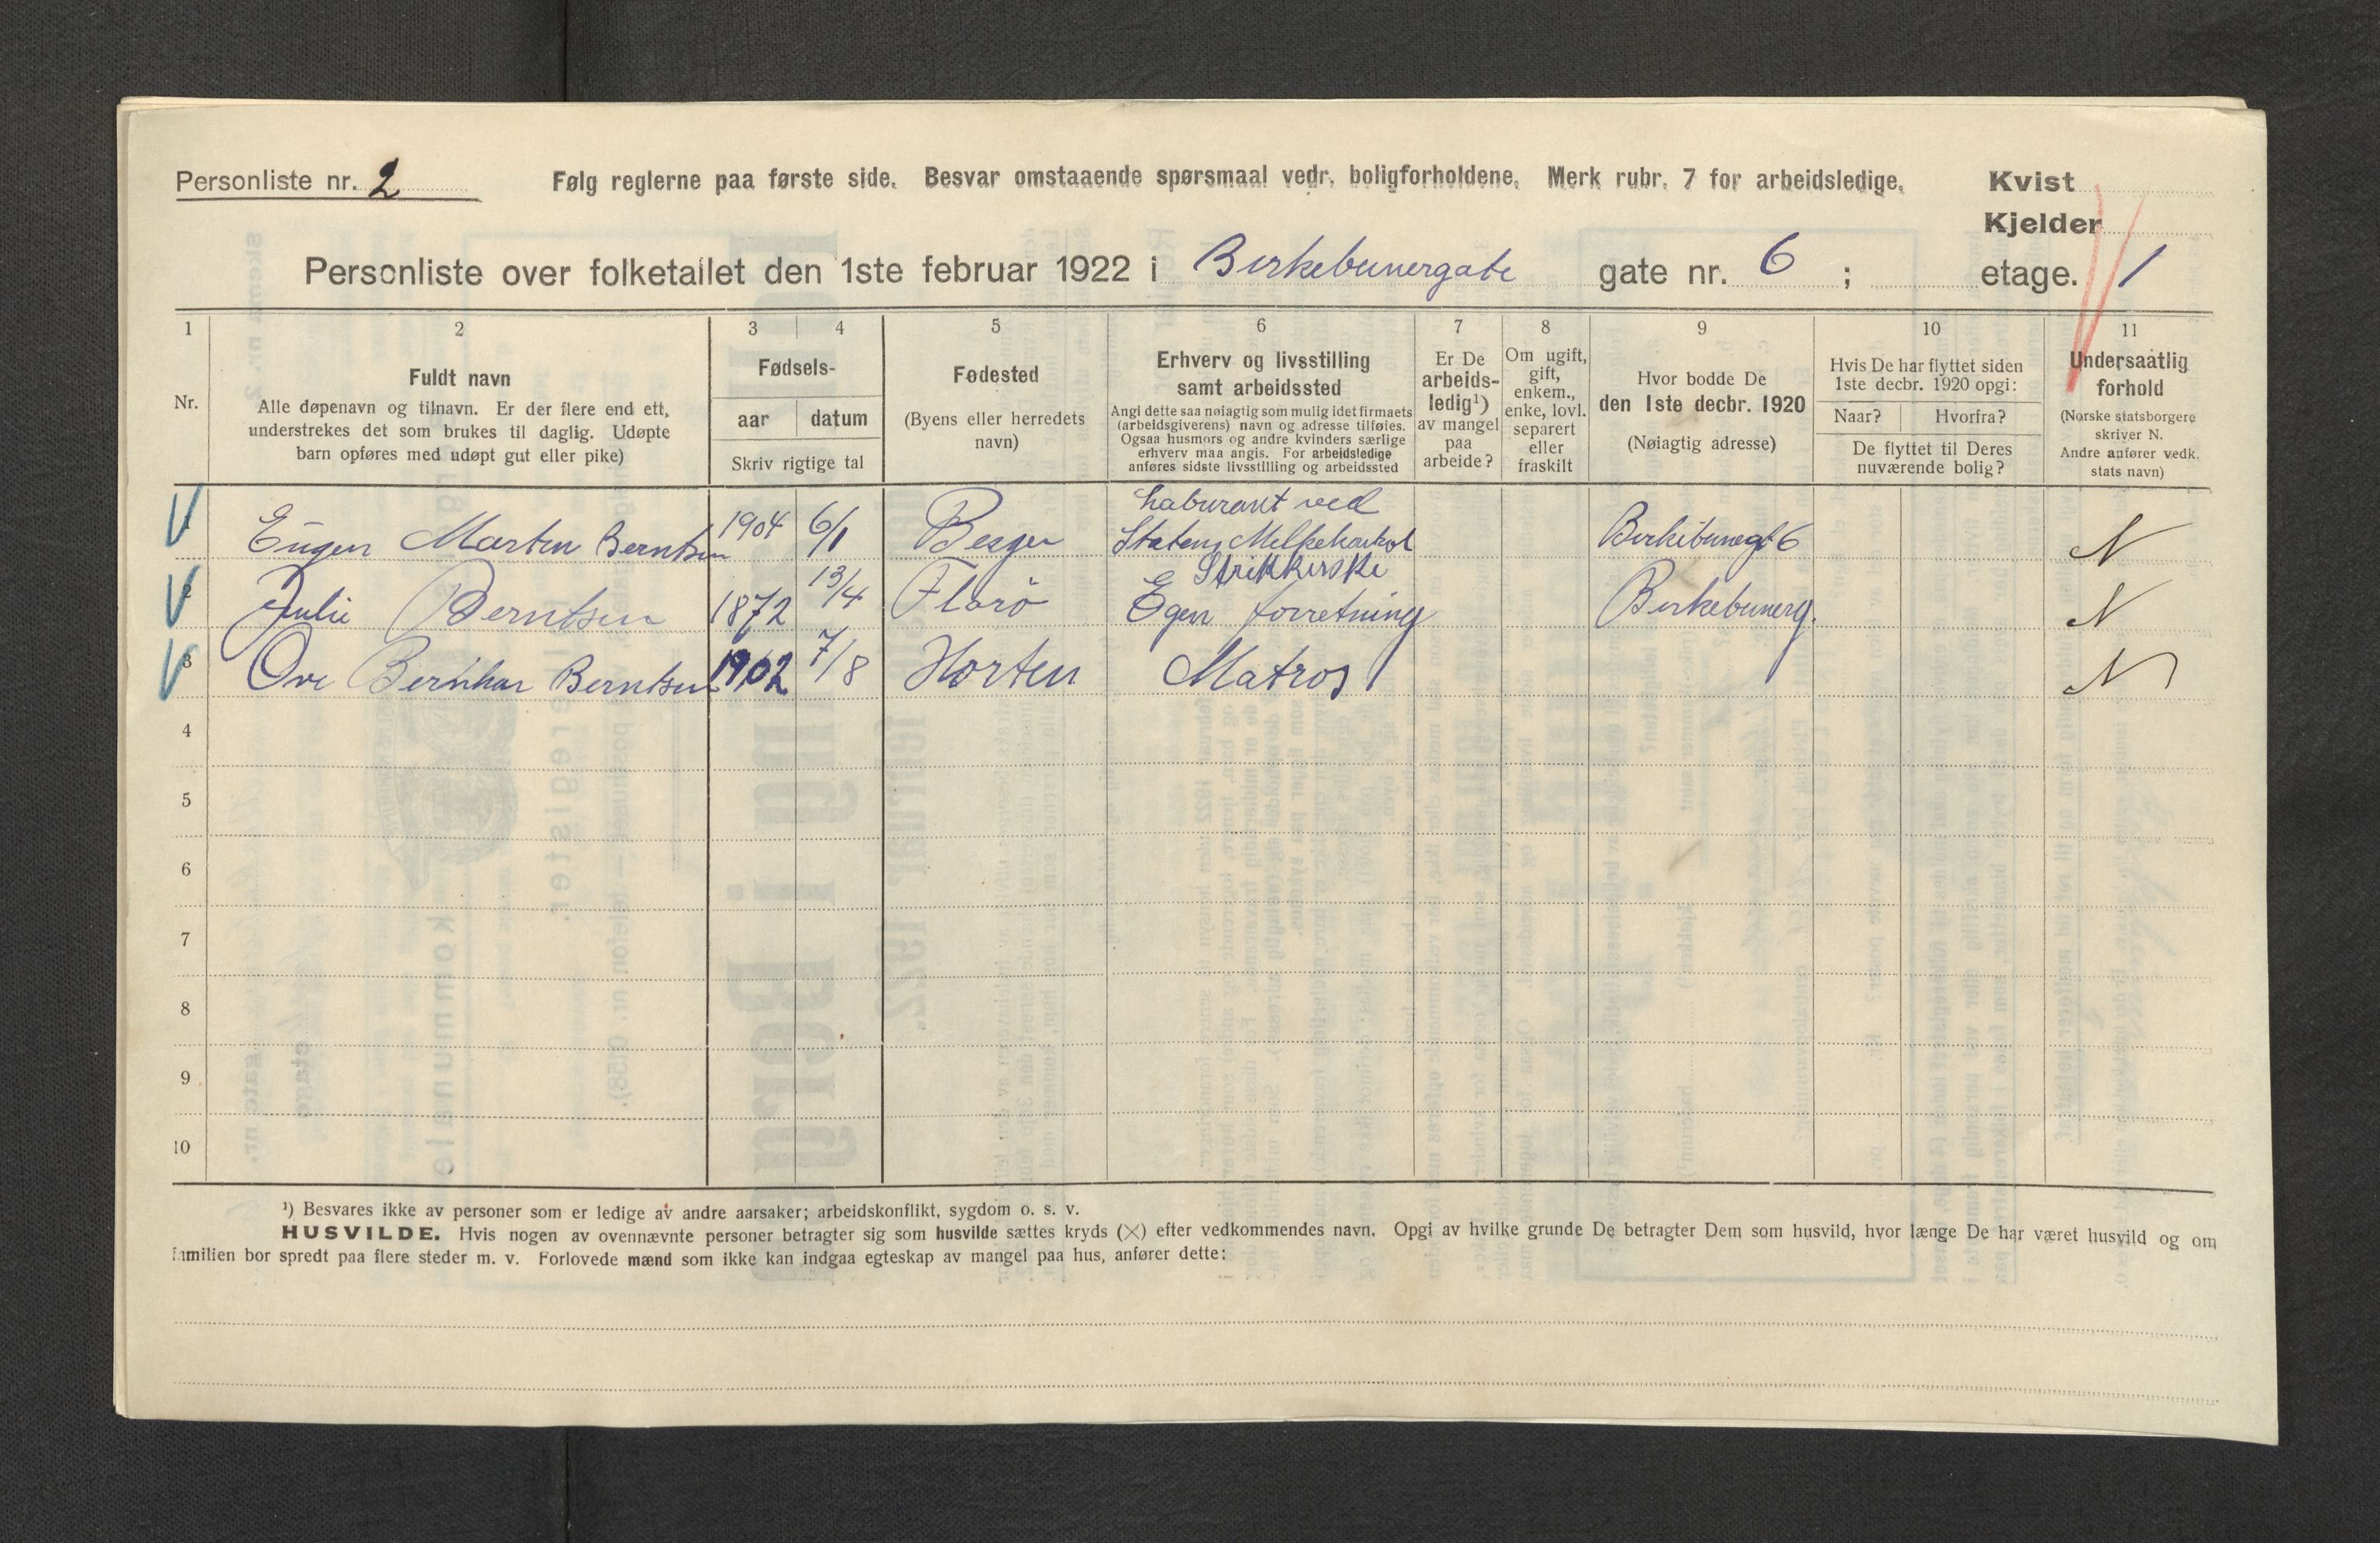 Personliste nr. 2
Følg reglerne paa første side. Besvar omstaaende spørsmaal vedr. boligforholdene. Merk rubr. 7 for arbeidsledige.
Kvist
Kjelder
Personliste over folketallet den 1ste februar 1922 i Birkebunergate gate nr. 6 ; etage. 1
1 2 3 4 5 6 7 8 9 10 11
Nr.
Fuldt navn
Alle døpenavn og tilnavn. Er der flere end ett,
understrekes det som brukes til daglig. Udøpte
barn opføres med udøpt gut eller pike)
Fødsels-
aar datum
Skriv rigtige tal
Fødested
(Byens eller herredets
navn)
Erhverv og livsstilling
samt arbeidssted
Angi dette saa nøiagtig som mulig idet firmaets
(arbeidsgiverens) navn og adresse tilføies.
Ogsaa husmors og andre kvinders særlige
erhverv maa angis. For arbeidsledige
anføres sidste livsstilling og arbeidssted
Er De
arbeids-
ledig¹)
av mangel
paa
arbeide?
Om ugift,
gift,
enkem.,
enke, lovl.
separert
eller
fraskilt
Hvor bodde De
den 1ste decbr. 1920
(Nøiagtig adresse)
Hvis De har flyttet siden
1ste decbr. 1920 opgi:
Naar? Hvorfra?
De flyttet til Deres
nuværende bolig?
Undersaatlig
forhold
(Norske statsborgere
skriver N.
Andre anfører vedk.
stats navn)
Laburant ved
Eugen Martin Berntsen 1904 6/1 Bergen Statens Melkekontrol Birkebunegt 6 N
Strikkerske
Julie Berntsen 1872 13/4 Florö Egen forretning Birkebunerg. N
3 Ove Bernhar Berntsen 1902 7/8 Horten Matros N
4
5
6
7
8
9
10
¹) Besvares ikke av personer som er ledige av andre aarsaker; arbeidskonflikt, sygdom o. s. v.
HUSVILDE. Hvis nogen av ovennævnte personer betragter sig som husvilde sættes kryds (×) efter vedkommendes navn. Opgi av hvilke grunde De betragter Dem som husvild, hvor længe De har været husvild og om
familien bor spredt paa flere steder m. v. Forlovede mænd som ikke kan indgaa egteskap av mangel paa hus, anfører dette: